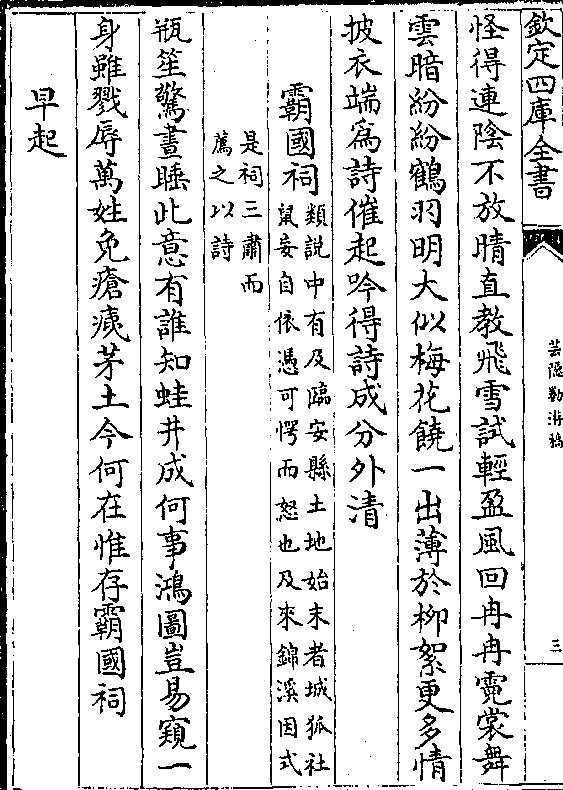 欽定四庫全書
芸隱勌游稿
三
怪得連陰不放晴直教飛雪試輕盈風回冉冉霓裳舞
雲暗紛紛鶴羽明大似梅花饒一出薄於柳絮更多情
披衣端為詩催起吟得詩成分外清
霸國祠
類說中有及臨安縣土地始末者城狐社
鼠妄自依憑可愕而怒也及來錦溪因式
是祠三肅而
薦之以詩
瓶笙驚晝睡此意有誰知蛙井成何事鴻圖豈易窺一
身雖戮辱萬姓免瘡痍茅土今何在惟存霸國祠
早起